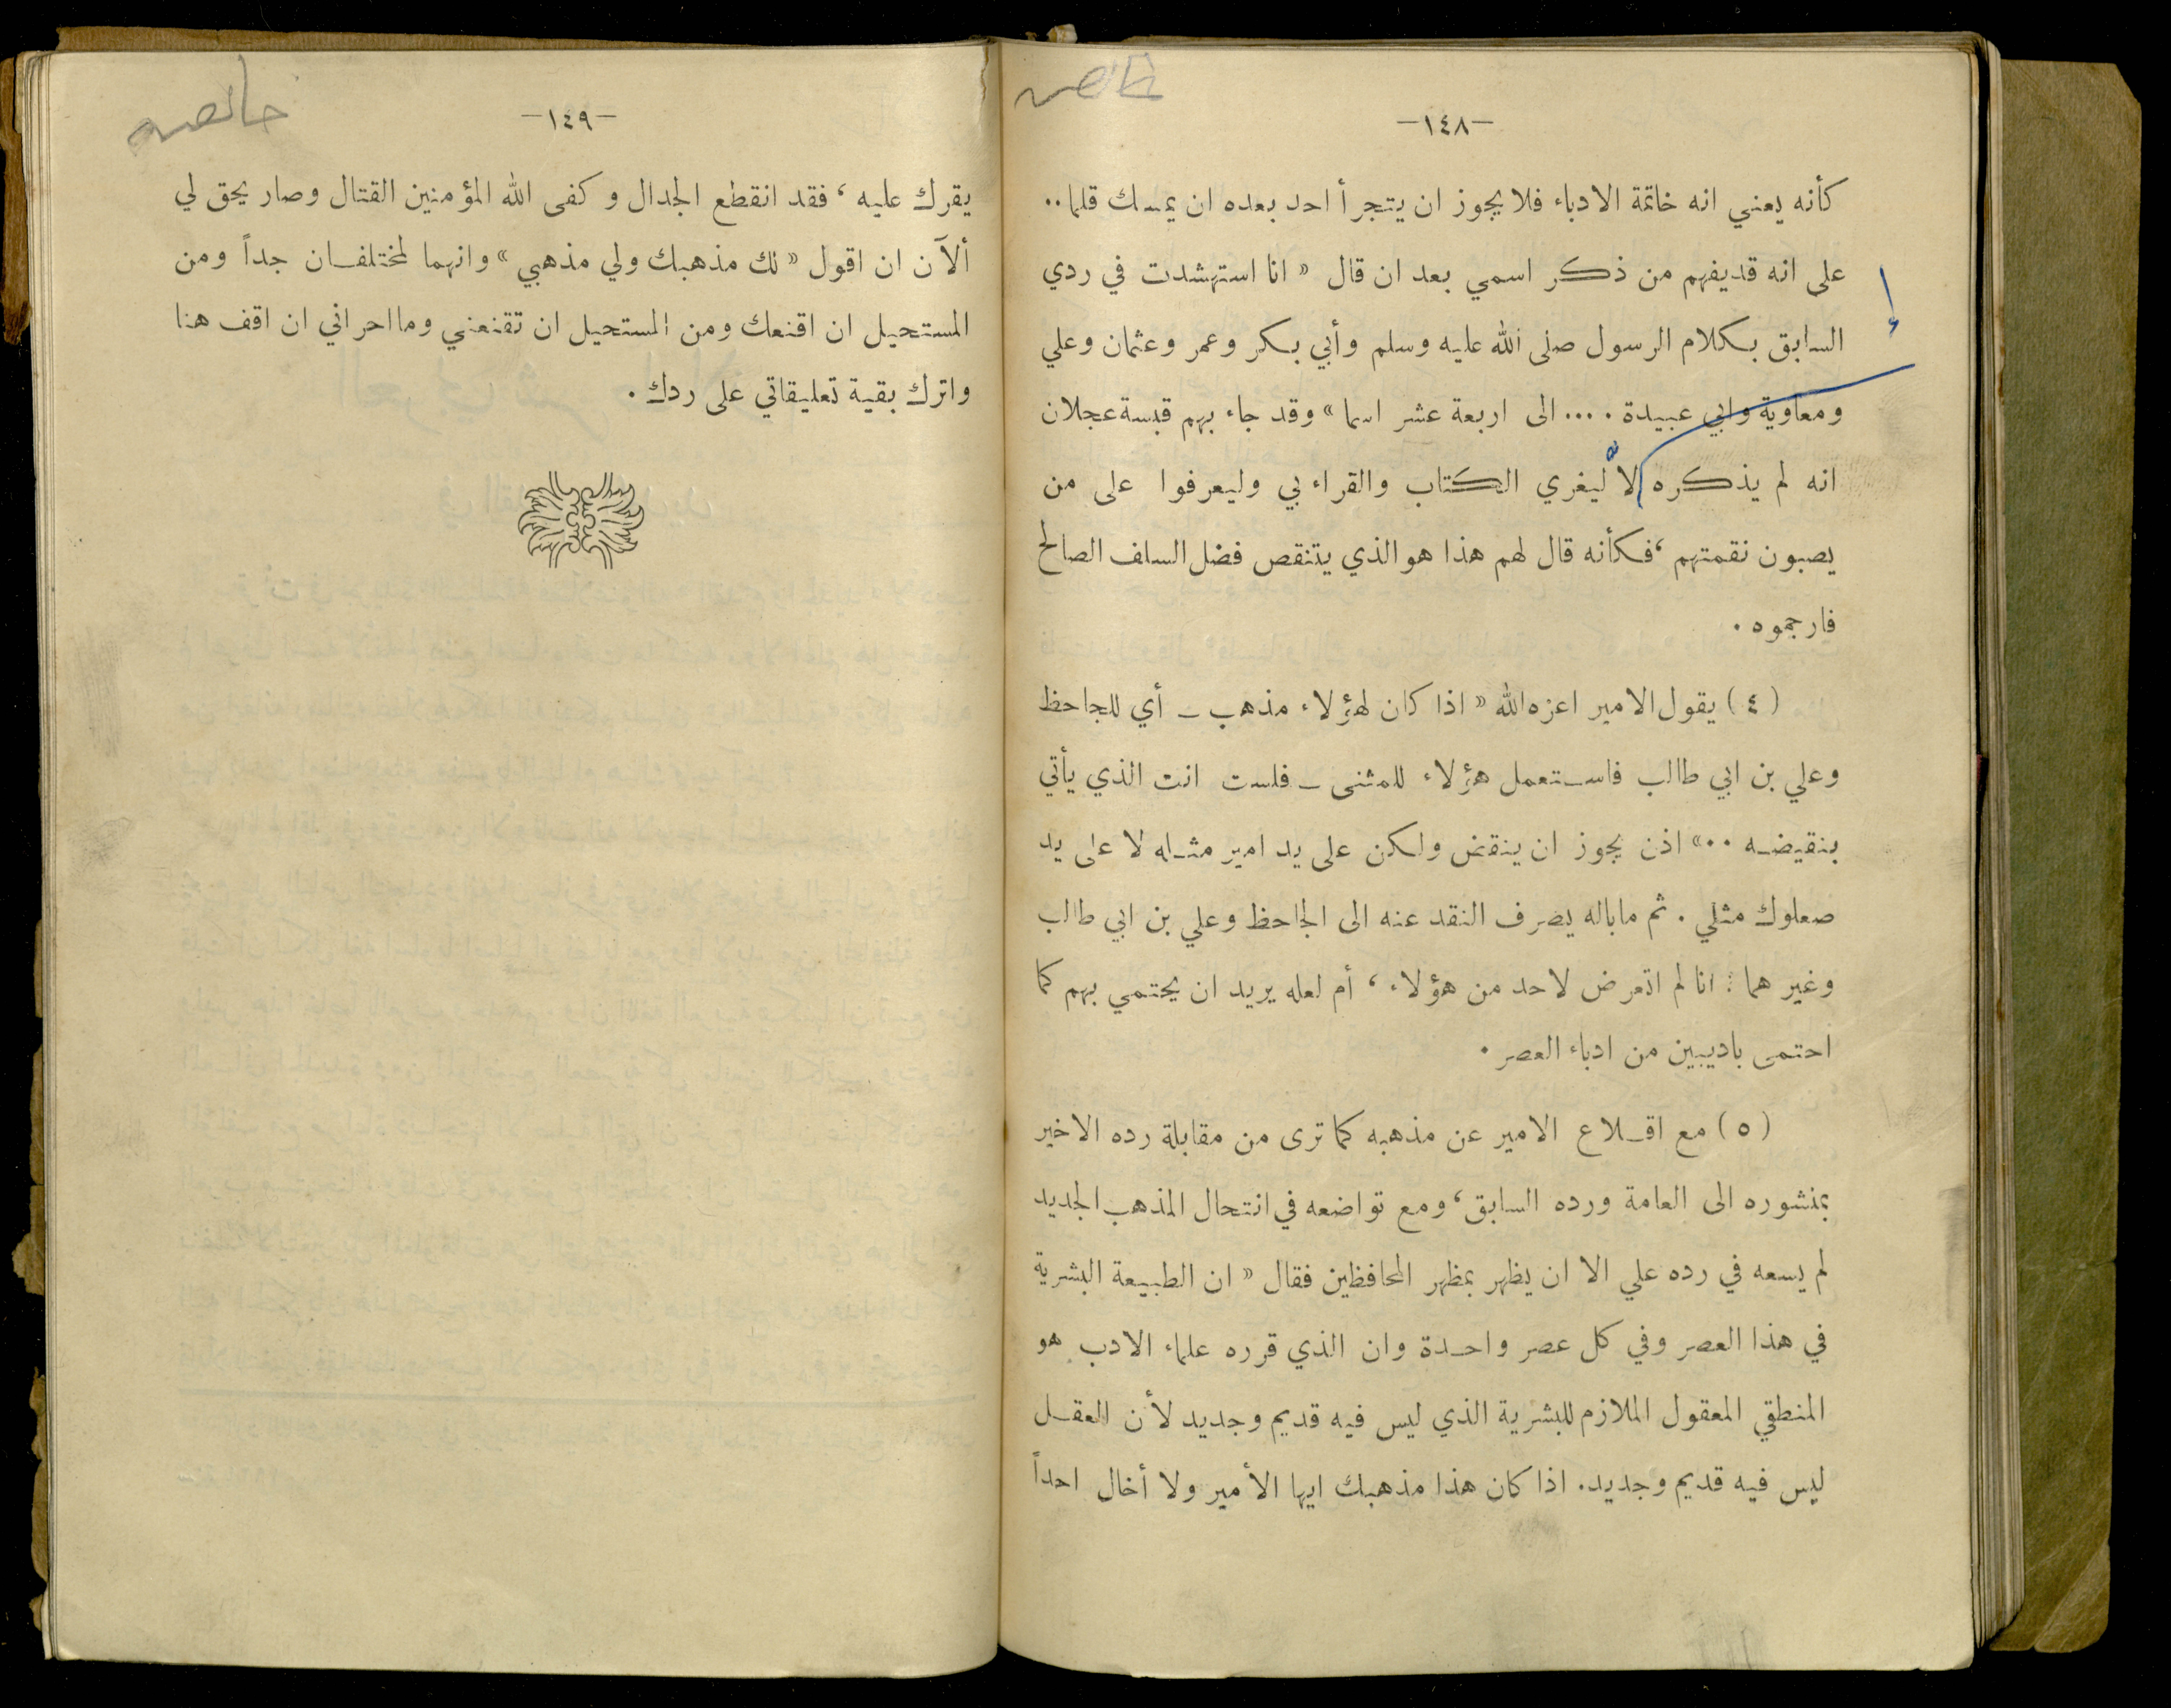 خالصه
—١٤٨—
كأنه يعني انه خاتمة الادباء فلا يجوز ان يتجرأ احد بعده ان يمسك قلما..
على انه قد يفهم من ذكر اسمي بعد ان قال « انا استشهدت في ردي
السابق بكلام الرسول صلى الله عليه وسلم وأبي بكر وعمر وعثمان وعلي
ومعاوية وابي عبيدة .... الى اربعة عشر اسما » وقد جاء بهم قبسة عجلان
انه لم يذكره الاّ ليغري الكتاب والقراء بي وليعرفوا على من
يصبون نقمتهم ، فكأنه قال لهم هذا هو الذي يتنقص فضل السلف الصالح
فارجموه .
( ٤ ) يقول الامير اعزه الله « اذا كان لهؤلاء مذهب ــ أي للجاحظ
وعلي بن ابي طالب فاستعمل هؤلاء للمثنى ــ فلست انت الذي يأتي
بنقيضه ..» اذن يجوز ان ينقض ولكن على يد امير مثله لا على يد
صعلوك مثلي . ثم ما باله يصرف النقد عنه الى الجاحظ وعلي بن ابي طالب
وغير هما : انا لم اتعرض لاحد من هؤلاء ، أم لعله يريد ان يحتمي بهم كما
احتمى باديبين من ادباء العصر .
( ٥ ) مع اقلاع الامير عن مذهبه كما ترى من مقابلة رده الاخير
بمنشوره الى العامة ورده السابق ، ومع تواضعه في انتحال المذهب الجديد
لم يسعه في رده علي الا ان يظهر بمظهر المحافظين فقال « ان الطبيعة البشرية
في هذا العصر وفي كل عصر واحدة وان الذي قرره علماء الادب هو
المنطقي المعقول الملازم للبشرية الذي ليس فيه قديم وجديد لأن العقل
ليس فيه قديم وجديد. اذا كان هذا مذهبك ايها الأمير ولا أخال احداً
خالصه
—١٤٩—
يقرك عليه ، فقد انقطع الجدال و كفى الله المؤمنين القتال وصار يحق لي
ألآن ان اقول « لك مذهبك ولي مذهبي » وانهما لمختلفان جداً ومن
المستحيل ان اقنعك ومن المستحيل ان تقنعني وما احراني ان اقف هنا
واترك بقية تعليقاتي على ردك .